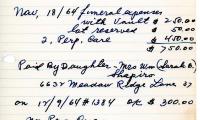 Nov, 18/64 funeral expenses
with Vault $ 250.00
lot reserved $ 50.00
2, Perp. Care $ 450.00
$ 750.00
Paid By Daughter - Mrs Wm (Sarah B.)
Shapiro
6632 Meadow Ridge Lane 37
on 12/9/64 #1384 O/C $ 300.00